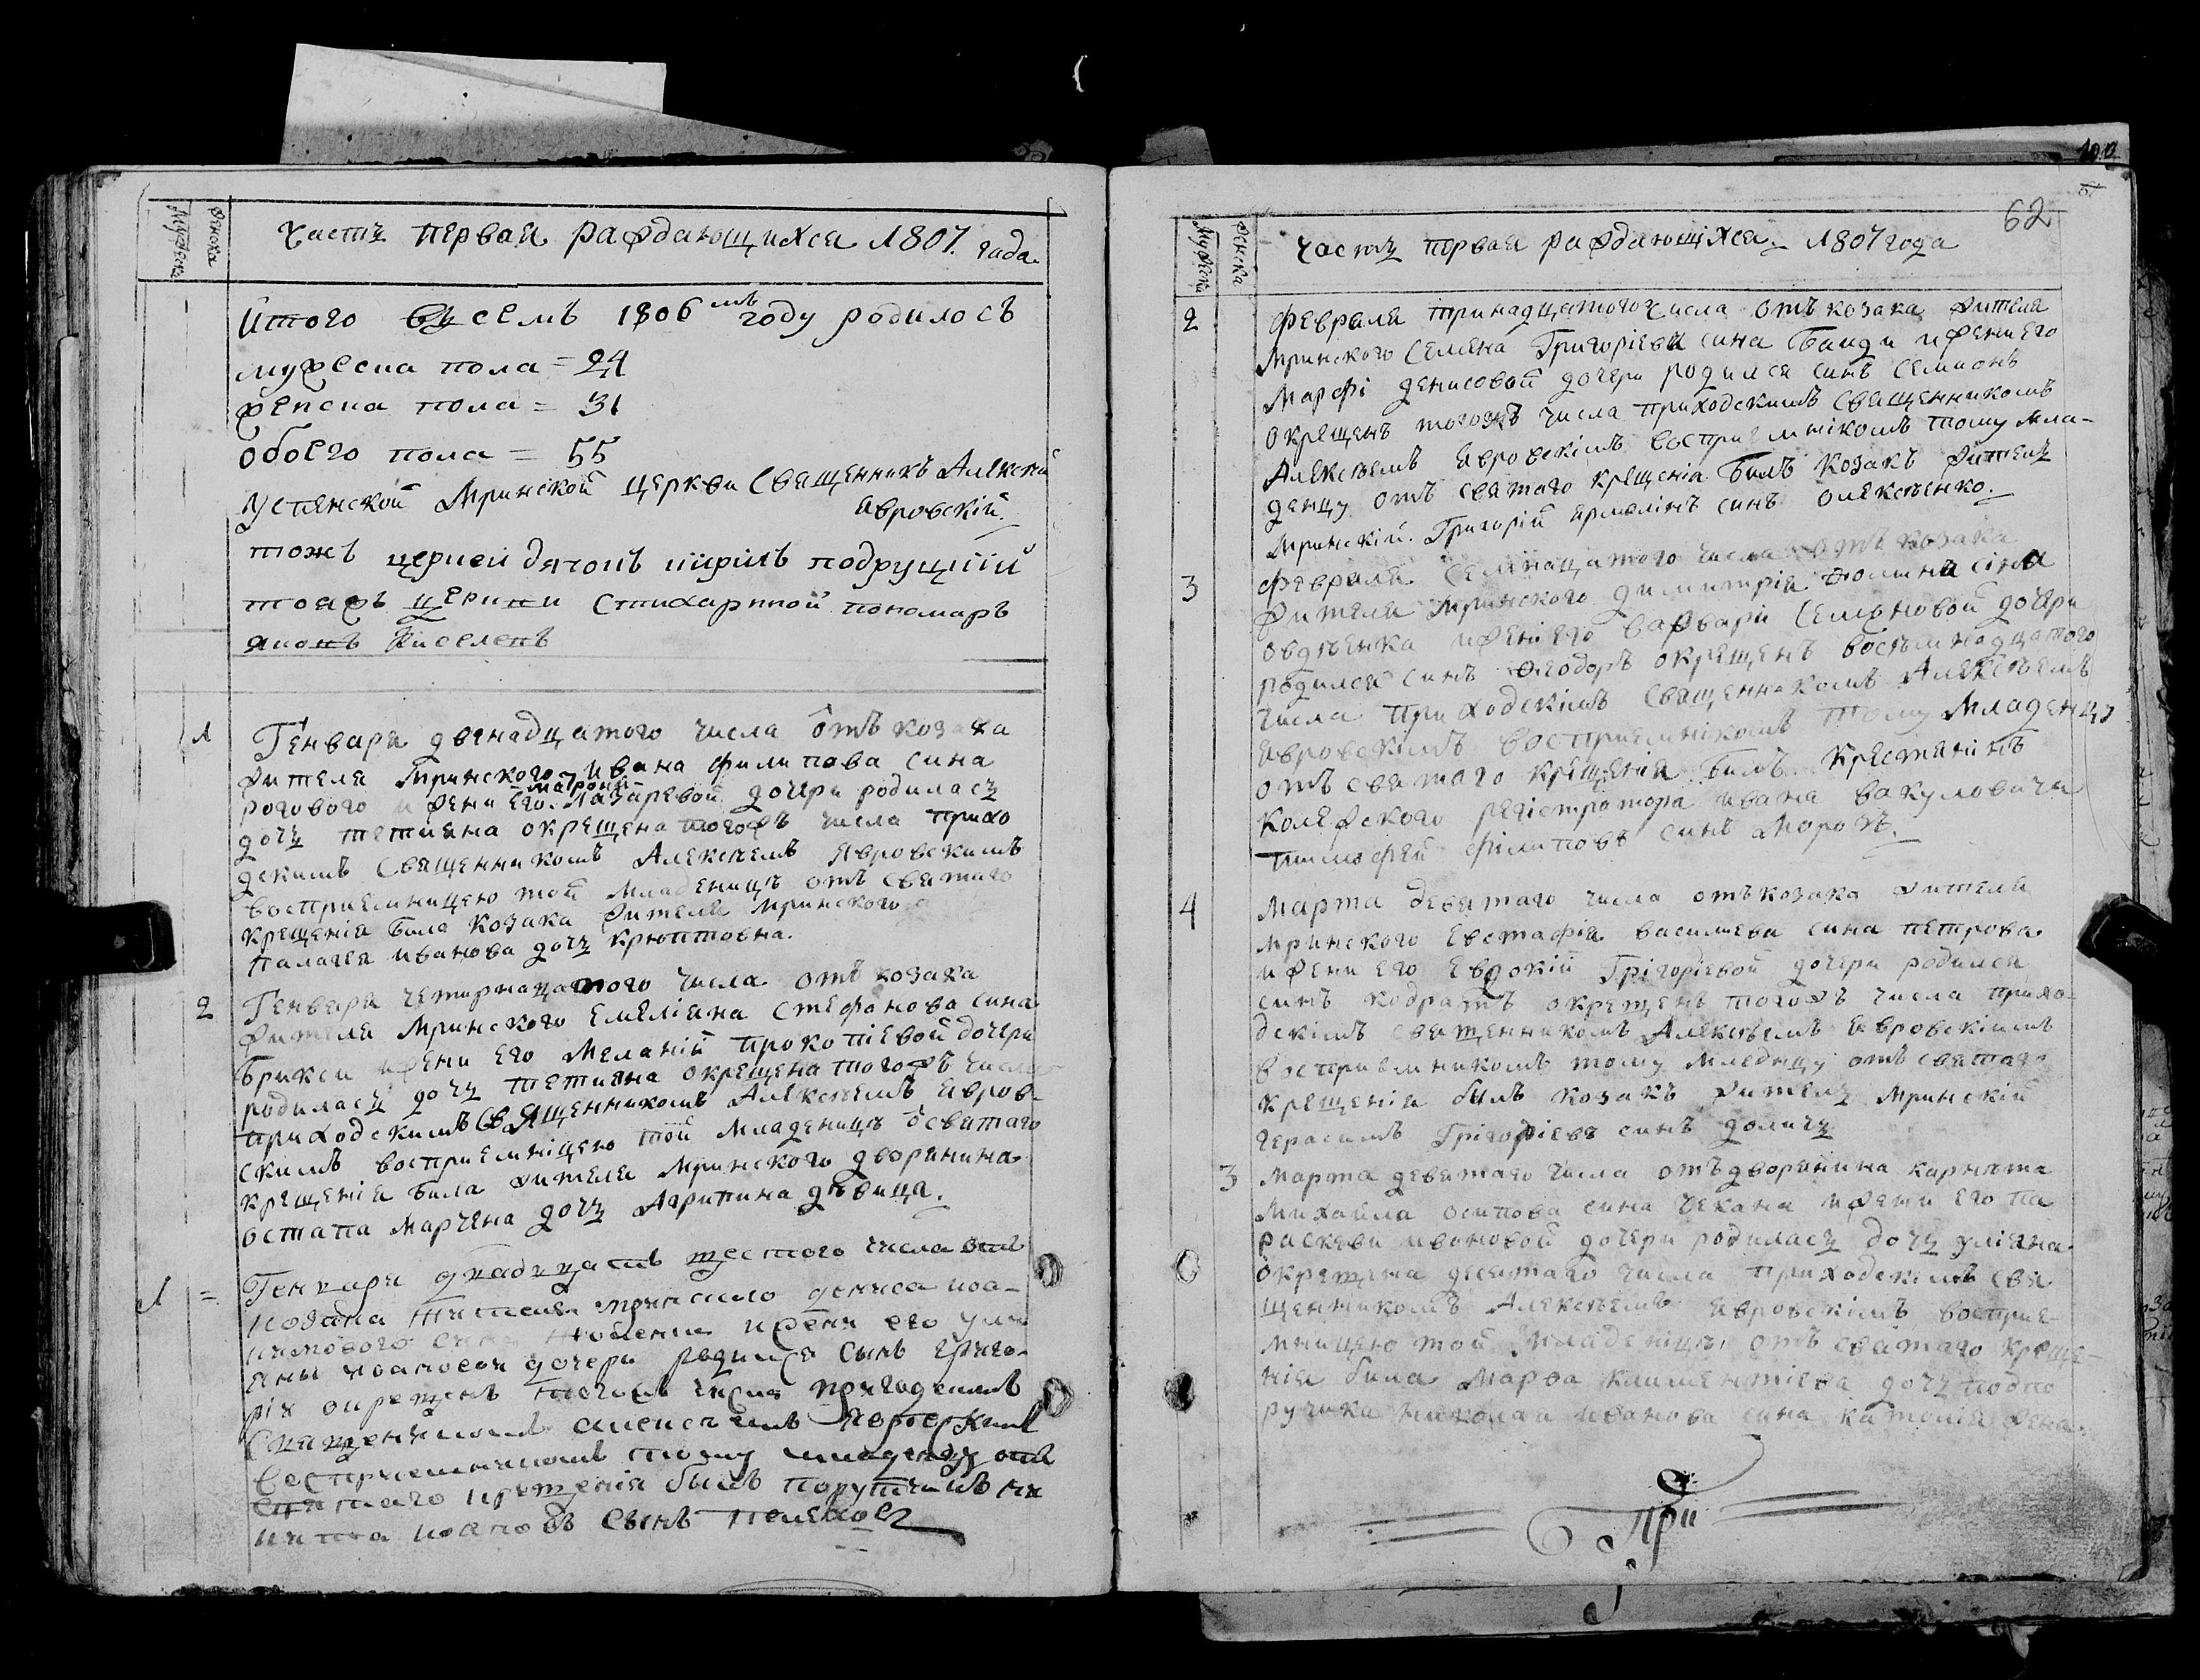 Мужеска
Женска
Часть первая раждающихся 1807. года.
Итого въ семъ 1806мъ году родилосъ
мужеска пола = 24
женска пола = 31
обоего пола = 55
Успенской Мринской церкви священникъ Алексей
Явровскій.
тожъ церкви дячокъ кирилъ подруцкій
тояжъ церкви стихарной пономаръ
Киселевъ
1
Генваря двенадцатого числа отъ козака
жителя Мринского Ивана филипова сина
рогового и жени его Матрони Лазаревой дочери родилась
дочь тетияна окрещена тогожъ числа прихо
дскимъ священникомъ Алексеемъ Явровскимъ
восприемницею той младеницъ отъ святаго
крещенія била козака жителя Мринского
Палагея иванова дочь
2
Генваря четирнацатого числа отъ козака
жителя Мринского Емеліяна Стефанова сина
Брикси и жени его Меланіи прокопіевой дочери
родилась дочь тетияна окрещена тогожъ числа
приходскимъ священникомъ Алексеемъ Явров-
скимъ восприемніцею той младеницъ о святаго
крещенія била жителя Мринского дворянина
остапа Марчена дочь Агрипина девица.
1 =
Генваря двадцать шестого числа отъ
козака жителя мринского дениса иоа-
сина и жени его ули
яны ивановой дочери родился сынъ григо-
рій окрещенъ того числа приходскимъ
священникомъ алексеемъ Явровскимъ
восприемникомъ тому младенцу отъ
святаго крещенія былъ порутчикъ ни
кита иоановъ сынъ
100
62
Мужеска
Женска
Часть первая раждающіхся 1807 года
2
февраля тринадцатого числа отъ козака жителя
Мринского Семена Григоріева сина Банди и жени его
Марфі денисовой дочери родился синъ Семионъ
окрещенъ тогожъ числа приходскимъ священникомъ
Алексеемъ Явровскімъ восприемнікомъ тому мла-
денцу отъ святаго крещенія билъ козакъ житель
Мринскій. Григорій ермолінъ синъ олексеенко.
3
февраля семінацатого числа отъ козака
жителя Мринского димитрія фомина сіна
овдѣенка и жени его варвари Семіоновой дочери
родился синъ Феодоръ окрещенъ восемнадцатого
числа приходскімъ священникомъ Алексеемъ
Явровскімъ восприемнікомъ тому младенцу
отъ святаго крещенія билъ крестянінъ
колежского регістратора ивана вакуловича
тимофей філиповъ синъ Морозъ.
4
Марта девятаго числа отъ козака жителя
мринского Евстафія василиева сина петрова
и жени его Евдокіи Грігоріевой дочери родился
синъ кодратъ окрещенъ тогожъ числа прихо-
дскімъ священникомъ Алексеемъ Явровскімъ
восприемникомъ тому младенцу отъ святаго
крещенія билъ козакъ житель Мринскій
герасимъ Грігоріевъ синъ
3
Марта девятаго числа отъ дворянина корнета
Михайла осипова сина Чекана и жени его па
раскеви ивановой дочери родилась дочь уліяна
окрещена десятаго числа приходскімъ свя
щенникомъ Алексеемъ Явровскімъ восприе-
мницею той младеніцы отъ святаго креще-
нія била Марфа климентіева дочь подпо
ручика николая иванова сина жена.
При